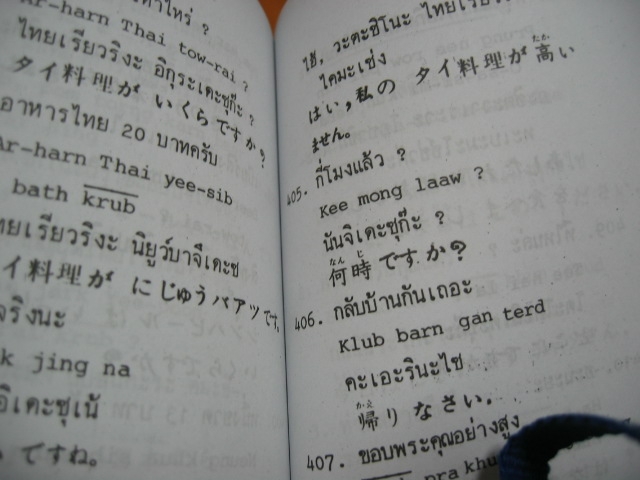 Ar-harn Thai tow-rai ?
ไทยเรียวริงะ อิกุระเดะซุก๊ะ ?
タイ料理が いくらですか?
อาหารไทย 20 บาทครับ
Ar-harn Thai yee-sib
bath krub
ไทยเรียวริงะ นิยูว์บาจึเดะซ
イ料理が にじゅうバアツです。
จริงนะ
k jing na
อิเดะซุเน้
ですね。
ไฮ้, วะตะชิโนะ ไทยเรียวริ
ไดมะเซ่ง
はい,私の タイ料理が 高い
ません。
405. กี่โมงแล้ว ?
Kee mong laaw ?
นันจิเดะซุก๊ะ ?
何時ですか?
406. กลับบ้านกันเถอะ
Klub barn gan terd
คะเอะรินะไซ
帰りなさい.
407. ขอบพระคุณอย่างสูง
pra khu